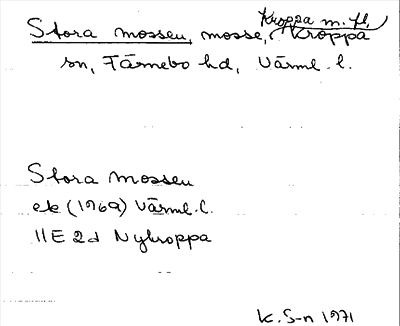 Kroppa m. fl.,
Stora mossen, mosse, Kroppa
sn, Färnebo hd, Värml. l.
Stora mossen
ek (1969) Värml. l.
11E 2d Nykroppa
K. S-n 1971